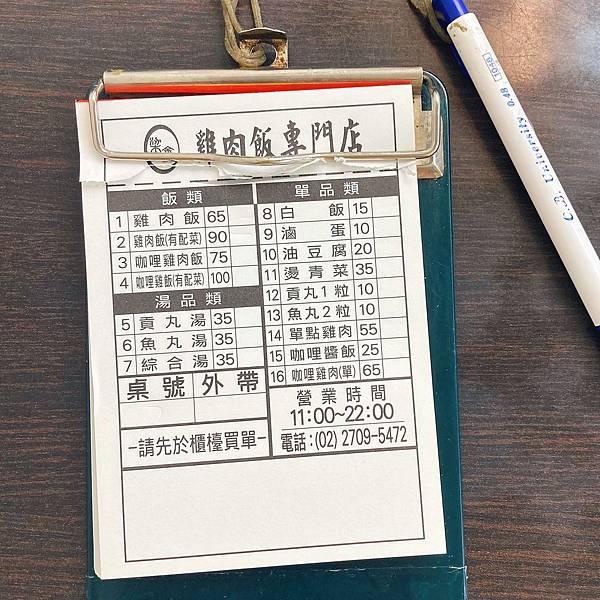 雞肉飯專門店
飯類
1 雞肉飯 65
2 雞肉飯(有配菜) 90
3 咖哩雞肉飯 75
4 咖哩雞飯(有配菜) 100
湯品類
5 貢丸湯 35
6 魚丸湯 35
7 綜合湯 35
桌號 外帶
-請先於櫃檯買單-
單品類
8 白飯 15
9 滷蛋 10
10 油豆腐 20
11 燙青菜 35
12 貢丸1粒 10
13 魚丸2粒 10
14 單點雞肉 55
15 咖哩醬飯 25
16 咖哩雞肉(單) 65
營業時間
11:00~22:00
電話:(02) 2709-5472
1046
C.B. University 0.48